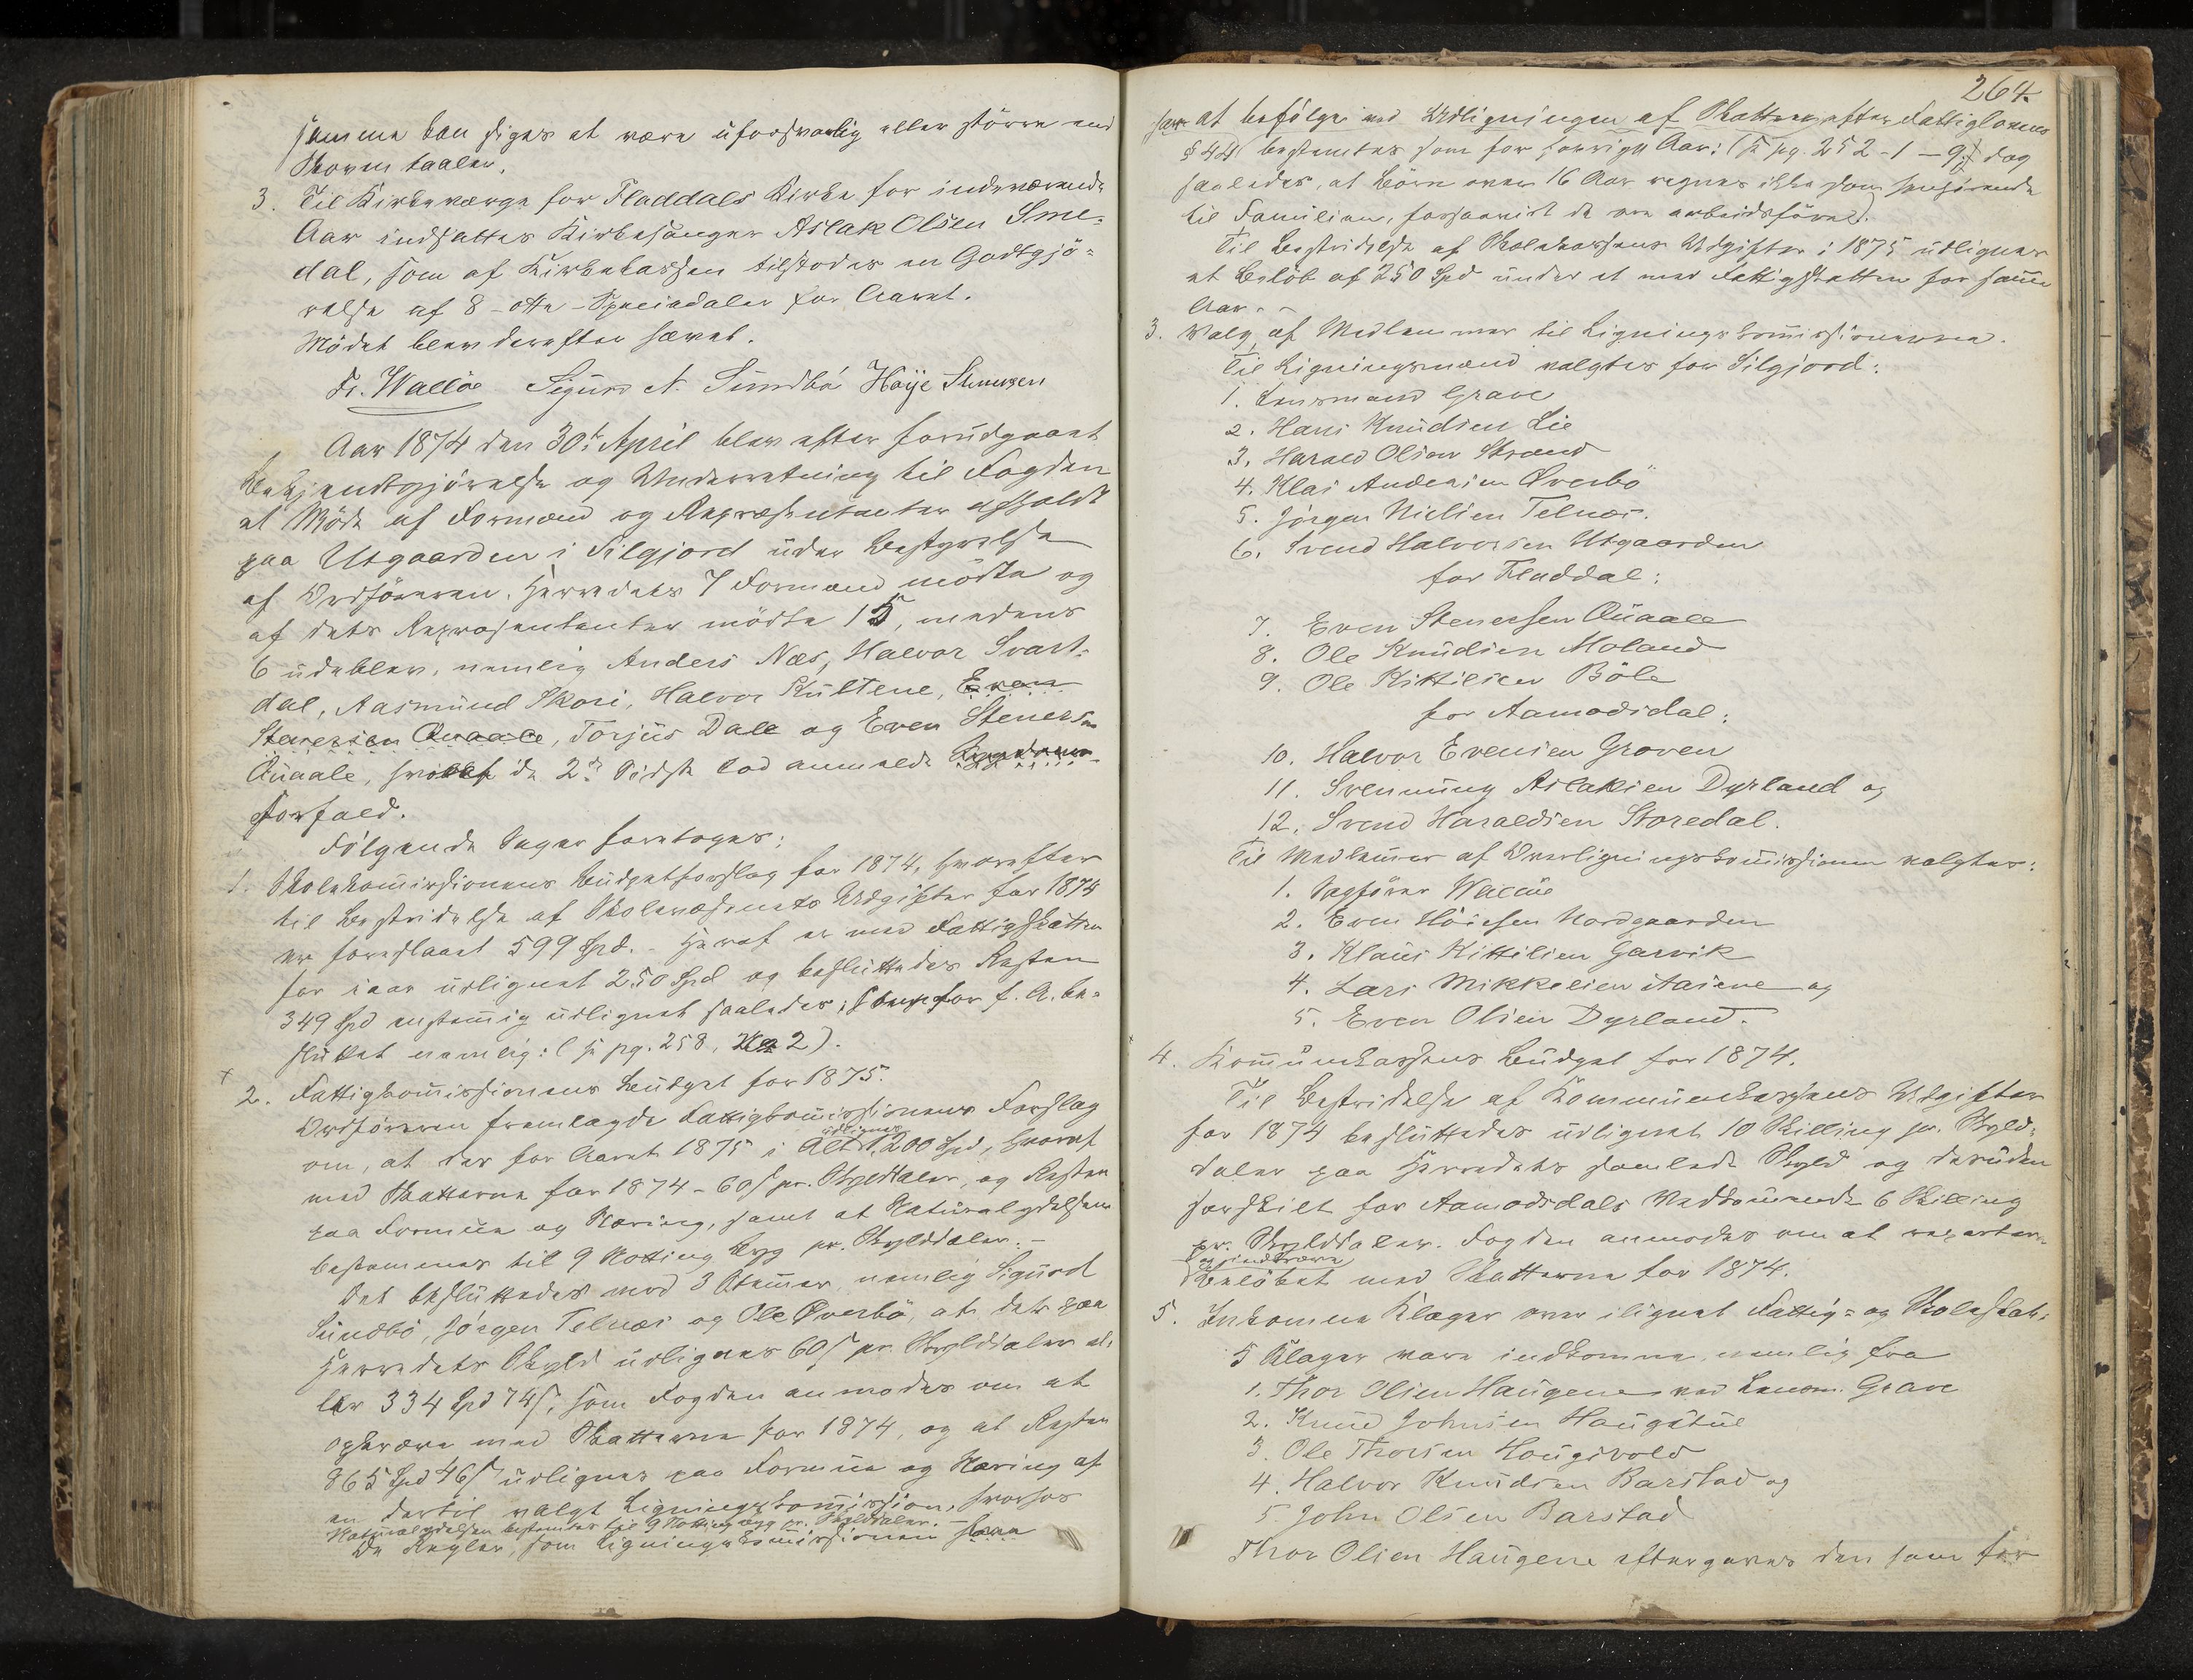 samme kan siges at være uforsvarlig eller större end
Skoven taaler.
3. Til Kirkeværge for Fladdals Kirke for indeværende
Aar indsattes Kirkesanger Aslak Olsen Sme-
dal, som af Kirkekassen tilstodes en Godtgjö-
relse af 8 - otte - Speciedaler for Aaret.
Mödet blev derefter hævet.
Fr. Wallöe Sigurd N. Sundbö Höije Stenersen
Aar 1874 den 30te April blev efter forudgaaet
Bekjendtgjörelse og Underretning til Fogden
et Möde af Formænd og Repræsentanter afholdt
paa Utgaarden i Silgjord under Bestyrelse
af Ordföreren. Herredets 7 Formænd mödte og
af dets Repræsentanter mödte 15, medens
6 udebleve, nemlig Anders Næs, Halvor Svart-
dal, Aasmund Skori, Halvor Kultene, Even
Stenersen Qvaale, Torjus Dale og Even Stenersen
Qvaale, hvoraf de 2de Sidste lod anmelde
Forfald.
Fölgende Sager foretoges:
1. Skolekommissionens Budgetforslag for 1874, hvorefter
til Bestridelse af Skolevæsenets Udgifter for 1874
er foreslaaet 599 Spd. - Heraf er med Fattigskatten
for iaar udlignet 250 Spd og besluttedes Resten
349 Spd enstemmig udlignet saaledes, som for f. A. be-
sluttet nemlig: (se pg. 258, No 2).
2. Fattigkommissionens Budget for 1875.
Ordföreren fremlagde Fattigkommissionens Forslag
udlignes
om, at der for Aaret 1875 i Alt 1,200 Spd, hvoraf
med Skatterne for 1874 - 60 s pr. Skylddaler, og Resten
paa Formue og Næring, samt at Naturalydelsen
bestemmes til 9 Notting Byg pr. Skylddaler. -
Det besluttedes med 3 Stemmer, nemlig Sigurd
Sundbö, Jörgen Telnæs og Ole Överbö, at det paa
Herredets Skyld udlignes 60 s pr. Skylddaler el-
ler 334 Spd 74 s, som Fogden anmodes om at
opkræve med Skatterne for 1874, og at Resten
865 Spd 46 s udlignes paa Formue og Næring af
en dertil valgt Ligningskommission, hvorhos
Naturalydelsen bestemtes til 9 Notting Byg pr. Skylddaler. -
De Regler, som Ligningskommissionen have
264.
have at befölge ved Udligningen af Skatten efter Fattiglovens
§ 44 bestemtes som for forrige Aar: (se pg. 252 - 1 - 9) dog
saaledes, at Börn over 16 Aar regnes ikke som henhörende
til Familien, forsaavidt de ere arbeidsföre.
Til Bestridelse af Skolekassens Udgifter i 1875 udlignes
et Belöb af 250 Spd under et med Fattigskatten for samme
Aar. -
3. Valg af Medlemmer til Ligningskommissionerne.
Til Ligningsmænd valgtes for Silgjord:
1. Lensmand Grave
2. Hans Knudsen Lie
3. Harald Olsen Strand
4. Klas Andersen Överbö
5. Jörgen Nielsen Telnæs.
6. Svend Halvorsen Utgaarden
for Fladdal:
7. Even Stenersen Qvaale
8. Ole Knudsen Moland
9. Ole Kittilsen Böle
for Aamodsdal:
10. Halvor Evensen Groven
11. Svenning Aslaksen Dyrland og
12. Svend Haraldsen Storedal.
Til Medlemmer af Overligningskommissionen valgtes:
1. Sagförer Wallöe
2. Even Höiesen Nordgaarden
3. Klaus Kittilsen Garvik
4. Lars Mikkelsen og
5. Even Olsen Dyrland.
4. Kommunekassens Budget for 1874.
Til Bestridelse af Kommunekassens Udgifter
for 1874 besluttedes udlignet 10 Skilling pr. Skyld-
daler paa Herredets samlede Skyld og desuden
særskilt for Aamodsdals Vedkommende 6 Skilling
pr. Skylddaler. Fogden anmodes om at repartere
og indkræve
Belöbet med Skatterne for 1874.
5. Inkomne Klager over ilignet Fattig- og Skoleskat.
5 Klager vare indkomne, nemlig fra
1. Thor Olsen Haugene ved Lensm. Grave
2. Knud Johnsen Haugstue
3. Ole Thorsen Haugsvold
4. Halvor Knudsen Barstad og
5. John Olsen Barstad
Thor Olsen Haugene eftergaves den ham for